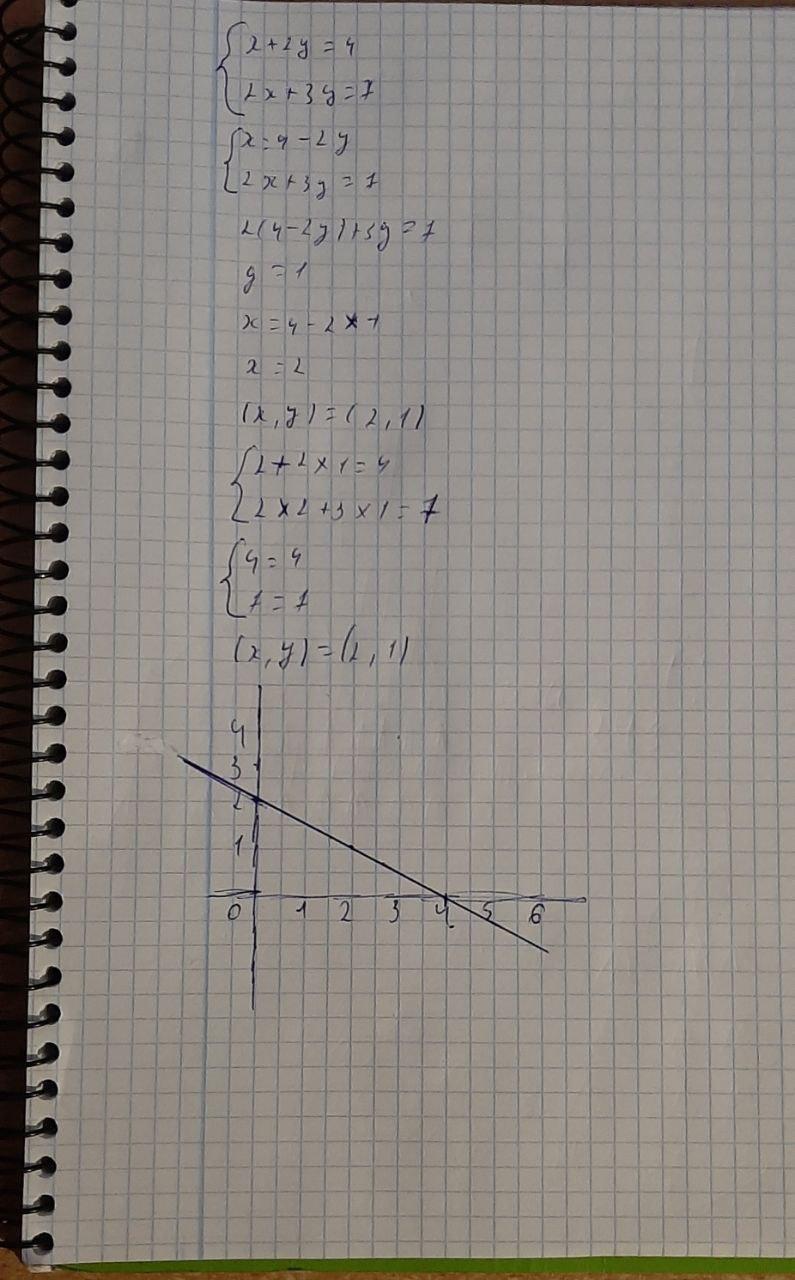 {x+2y=4
{2x+3y=7
{x=4-2y
{2x+3y=7
2(4-2y)+3y=7
y=1
x=4-2×1
x=2
(x,y)=(2,1)
{2+2×1=4
{2×2+3×1=7
{4=4
{7=7
(x,y)=(2,1)
4
3
2
1
0 1 2 3 4 5 6